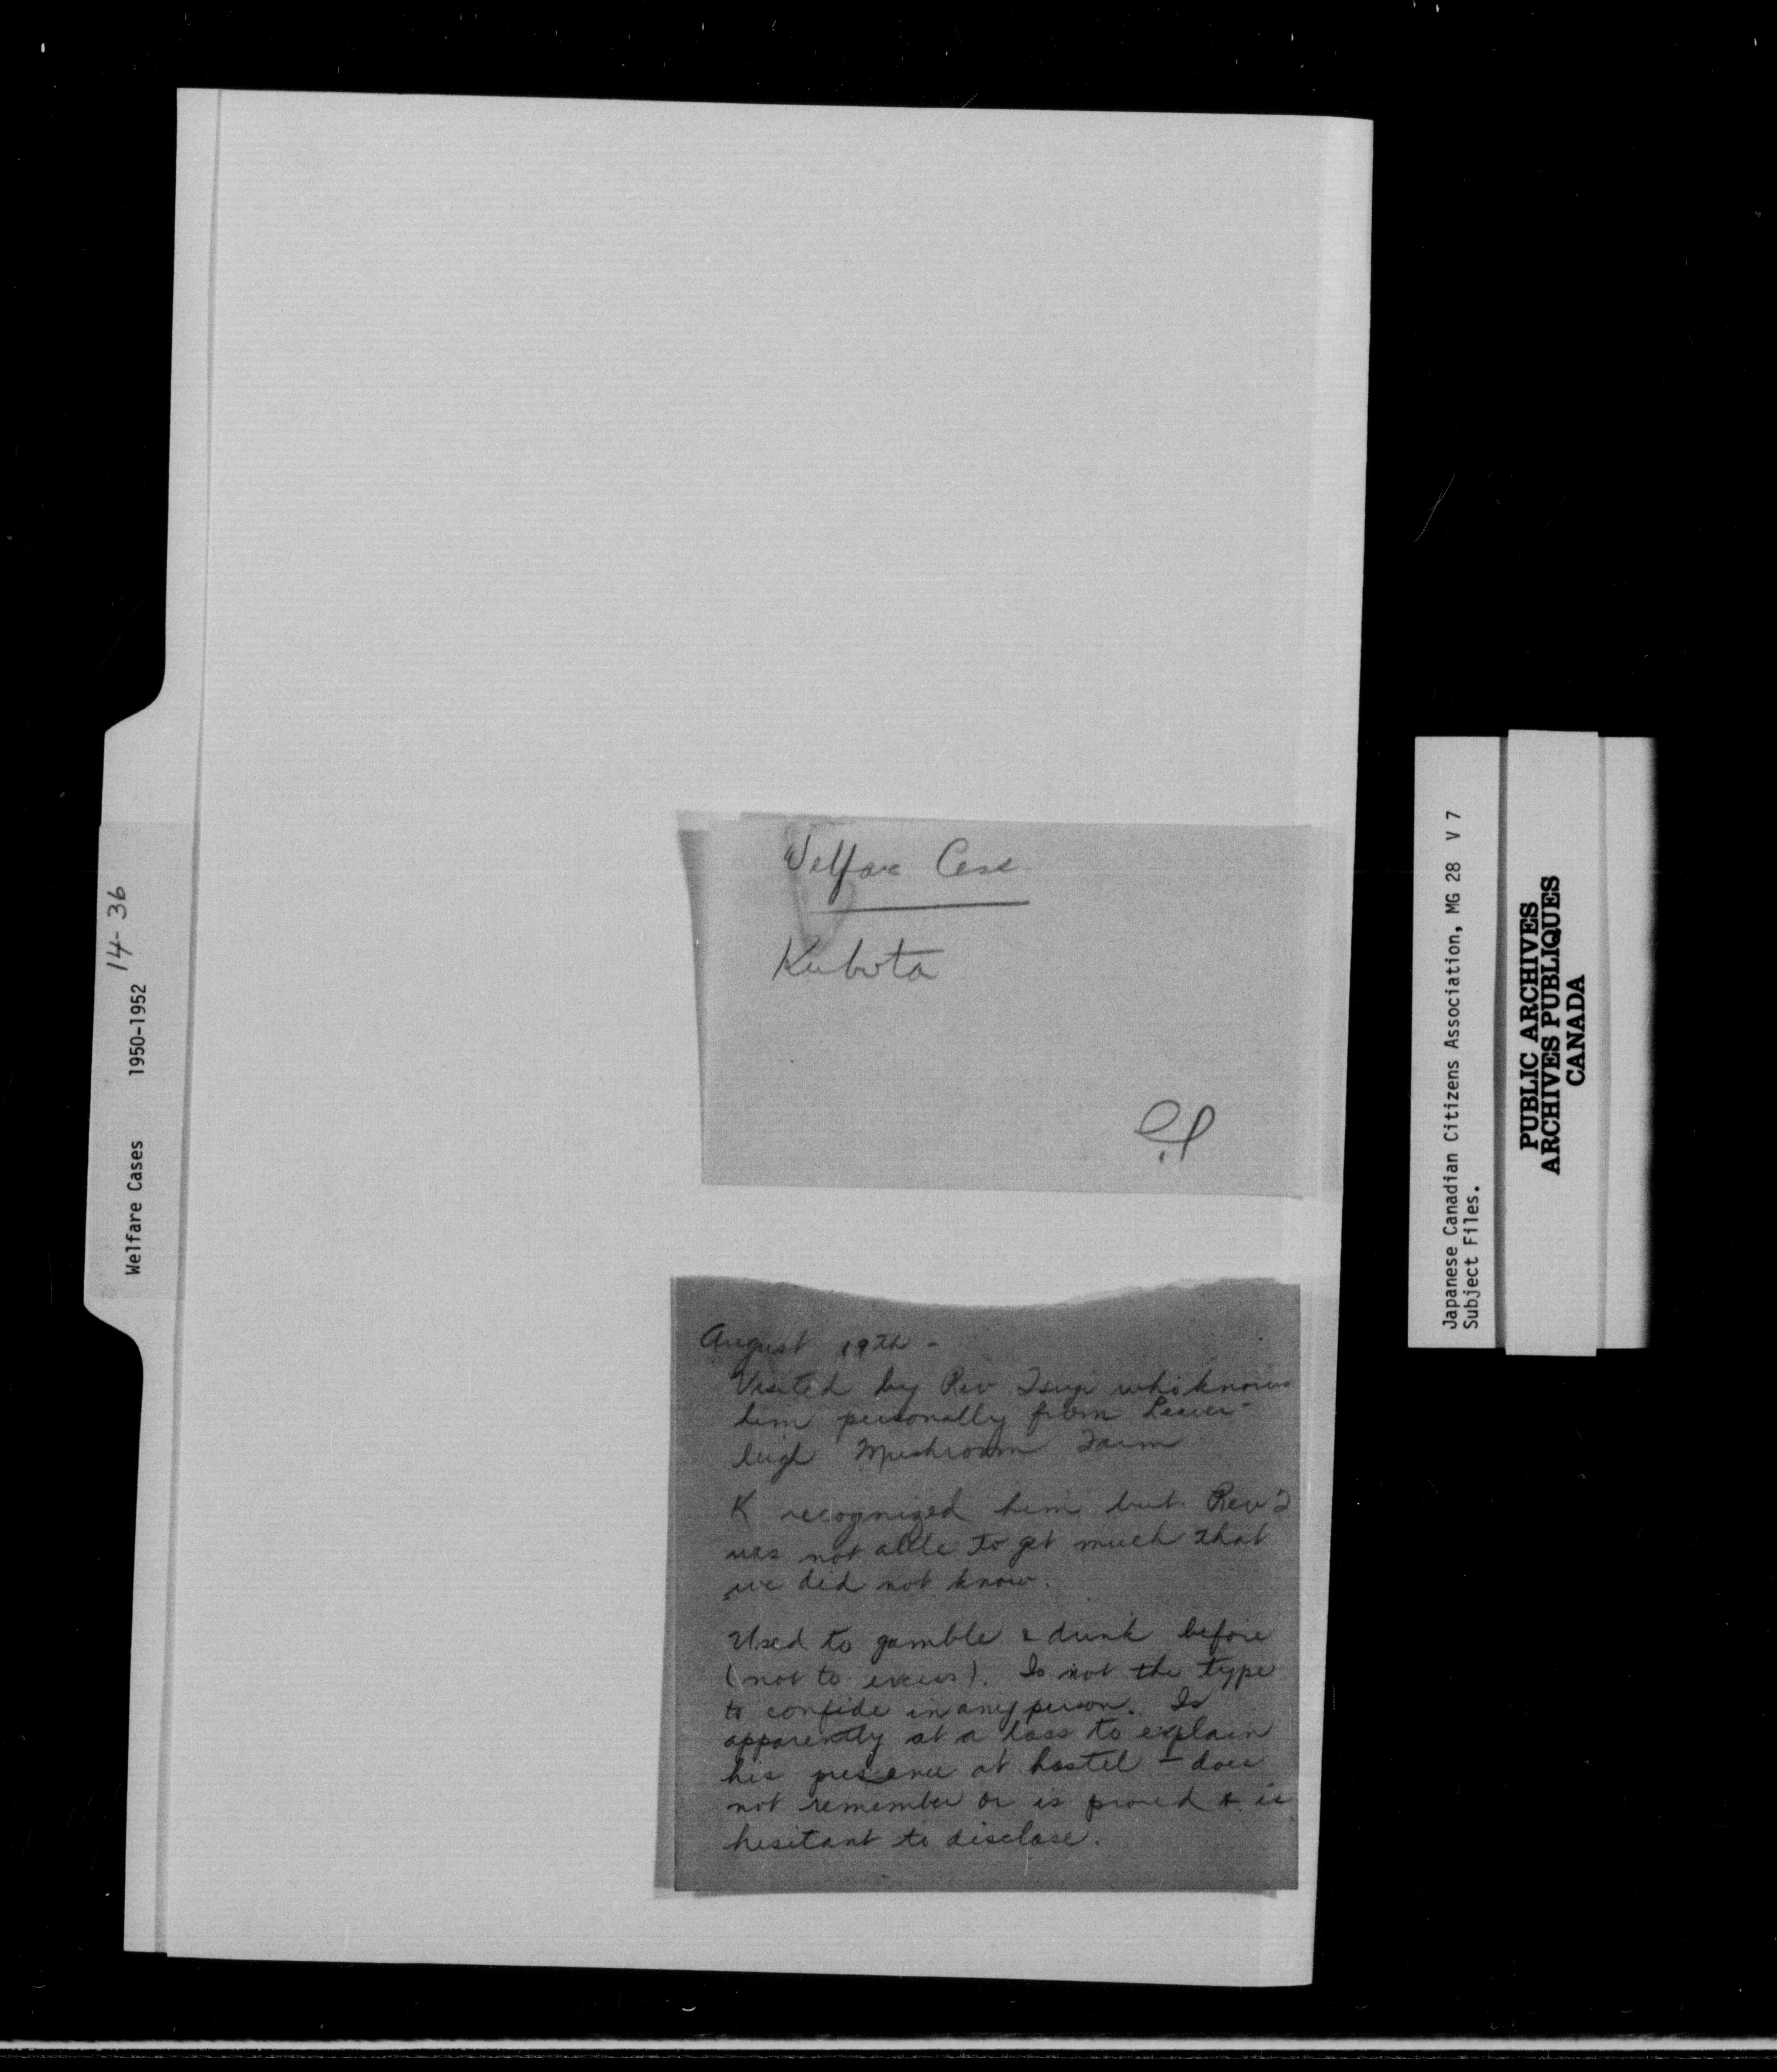 Welfare Cases 1950-1952 14-36
Welfare Case
Kubota
August 19th -
Visited by Rev Tsuji who knows
him personally from Leaver-
leigh Mushroom Farm
K recognized him but Rev T
was not able to get much that
we did not know.
Used to gamble & drink before
(not to excess). Is not the type
to confide in any person. Is
apparently at a loss to explain
his presence at hostel - does
not remember or is proud & is
hesitant to disclose.
Japanese Canadian Citizens Association, MG 28 V 7
Subject Files.
PUBLIC ARCHIVES
ARCHIVES PUBLIQUES
CANADA